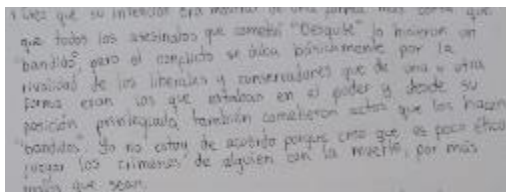 que su intención era mostrar de una forma más que
que todos los asesinatos que cometió "Desquite" lo hicieron un
"bandido", pero el conflicto se daba básicamente por la
rivalidad de los liberales y conservadores que de una u otra
forma eran los que estaban en el poder y desde su
posición privilegiada también cometieron actos que los hacen
"bandidos". Yo no estoy de acuerdo porque creo que es poco ético
juzgar los crímenes de alguien con la muerte, por más
malos que sean.